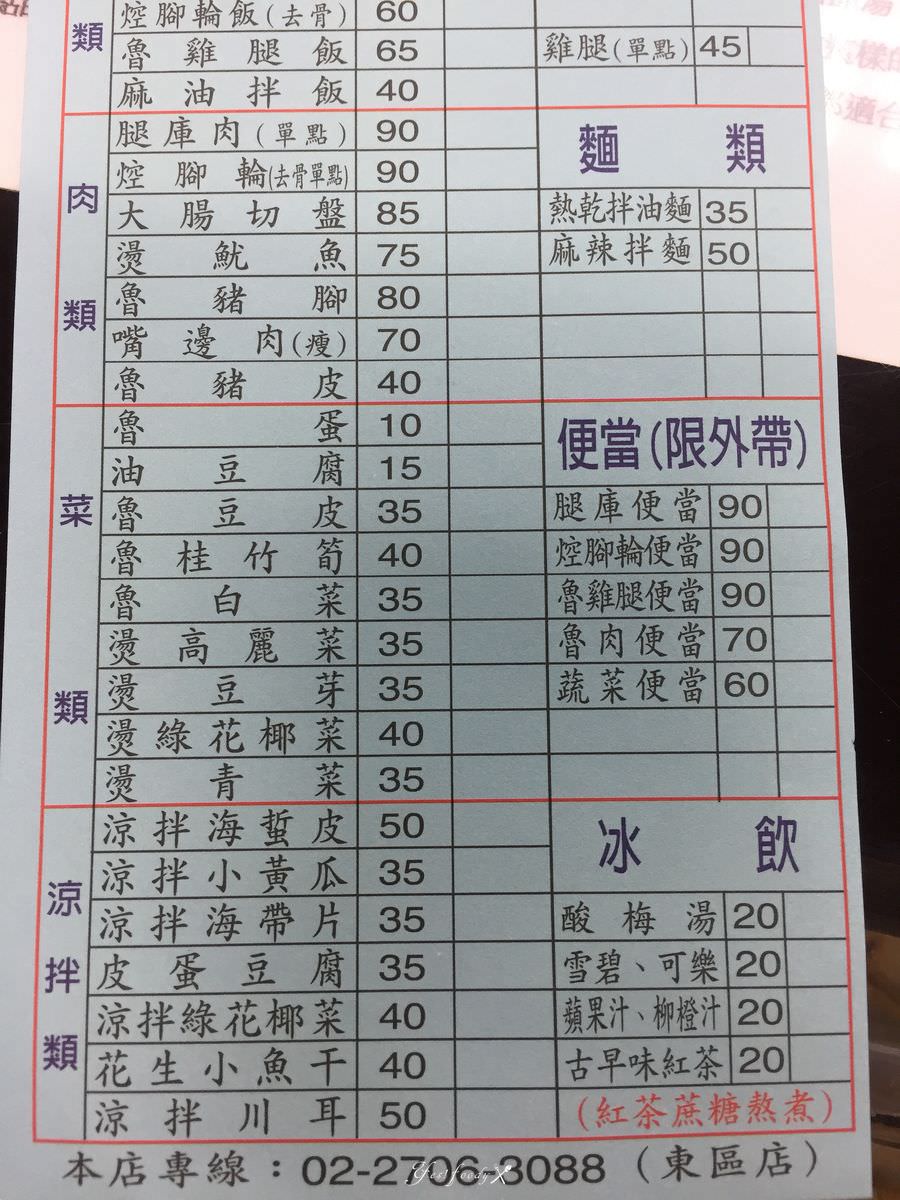 類
焢腳輪飯(去骨) 60
魯雞腿飯 65
麻油拌飯 40
雞腿(單點) 45
肉類
腿庫肉(單點) 90
焢腳輪(去骨單點) 90
大腸切盤 85
燙魷魚 75
魯豬腳 80
嘴邊肉(瘦) 70
魯豬皮 40
麵類
熱乾拌油麵 35
麻辣拌麵 50
菜類
魯蛋 10
油豆腐 15
魯豆皮 35
魯桂竹筍 40
魯白菜 35
燙高麗菜 35
燙豆芽 35
燙綠花椰菜 40
燙青菜 35
便當(限外帶)
腿庫便當 90
焢腳輪便當 90
魯雞腿便當 90
魯肉便當 70
蔬菜便當 60
涼拌類
涼拌海蜇皮 50
涼拌小黃瓜 35
涼拌海帶片 35
皮蛋豆腐 35
涼拌綠花椰菜 40
花生小魚干 40
涼拌川耳 50
冰飲
酸梅湯 20
雪碧、可樂 20
蘋果汁、柳橙汁 20
古早味紅茶 20
(紅茶蔗糖熬煮)
本店專線：02-2706-3088 (東區店)
湯
樣的
適合